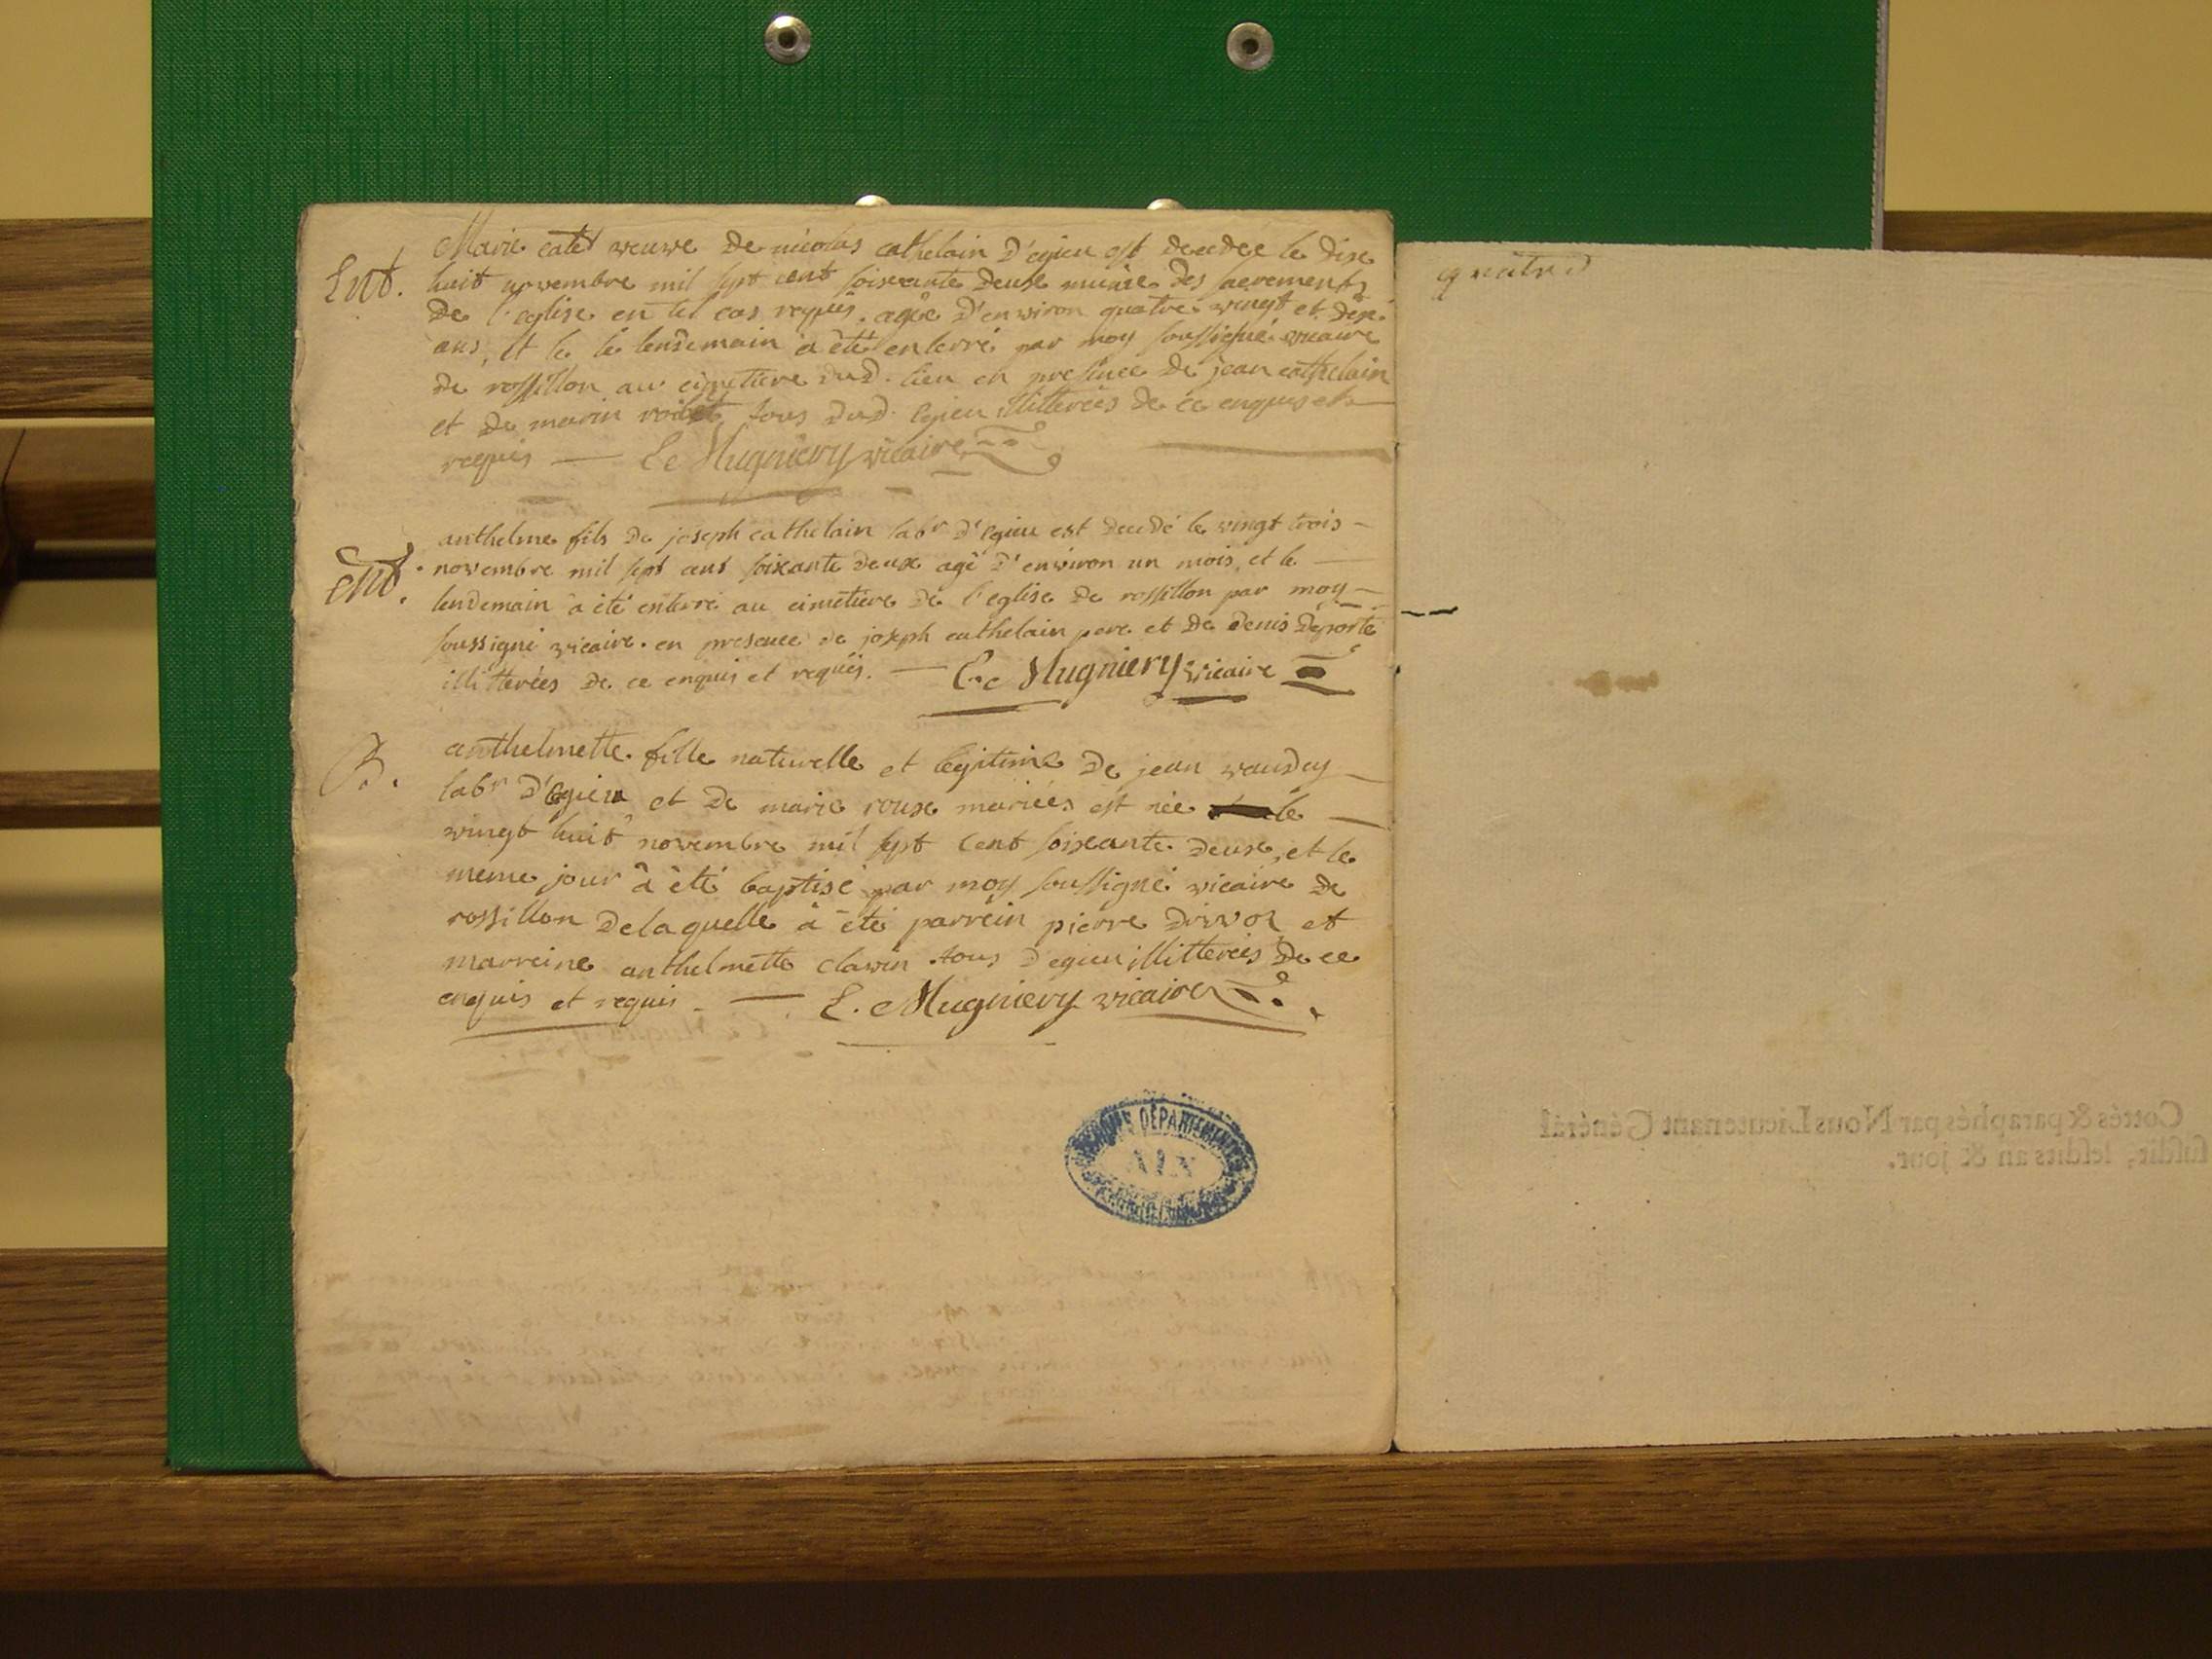 Ent.
Marie veuve de nicolas cathelain d'egieu est decedée le dix
huit novembre mil sept cent soixante deux munie des sacrements
de l'eglise en tel cas requis. agée d'environ quatre vingt et dix
ans, et le le lendemain a été enterré par moy soussigné vicaire
de rossillon au cimetiere dud. lieu en presence de jean cathelain
et de marin tous dud. egieu illitterées de ce enquis et
requis — Mugniery vicaire
ent.
anthelme fils de joseph cathelain labr d'egieu est decedé le vingt trois
novembre mil sept cent soixante deux agé d'environ un mois, et le
lendemain a été enterré au cimetiere de l'eglise de rossillon par moy
soussigné vicaire. en presence de joseph cathelain pere et de denis deporte
illitterées de ce enquis et requis. — Mugniery vicaire
B.
anthelmette fille naturelle et legitime de jean vauday
labr d'egieu et de marie roux mariées est née le
vingt huit novembre mil sept cent soixante deux, et le
meme jour à été baptisé par moy soussigné vicaire de
rossillon delaquelle à été parrein pierre et
marreine anthelmette clavin tous d'egieu illitterées de ce
enquis et requis. — Mugniery vicaire
ARCHIVES DÉPARTEMENTALES
AIN
Cottés & paraphés par Nous Lieutenant Général
susdit, lesdits an & jour.